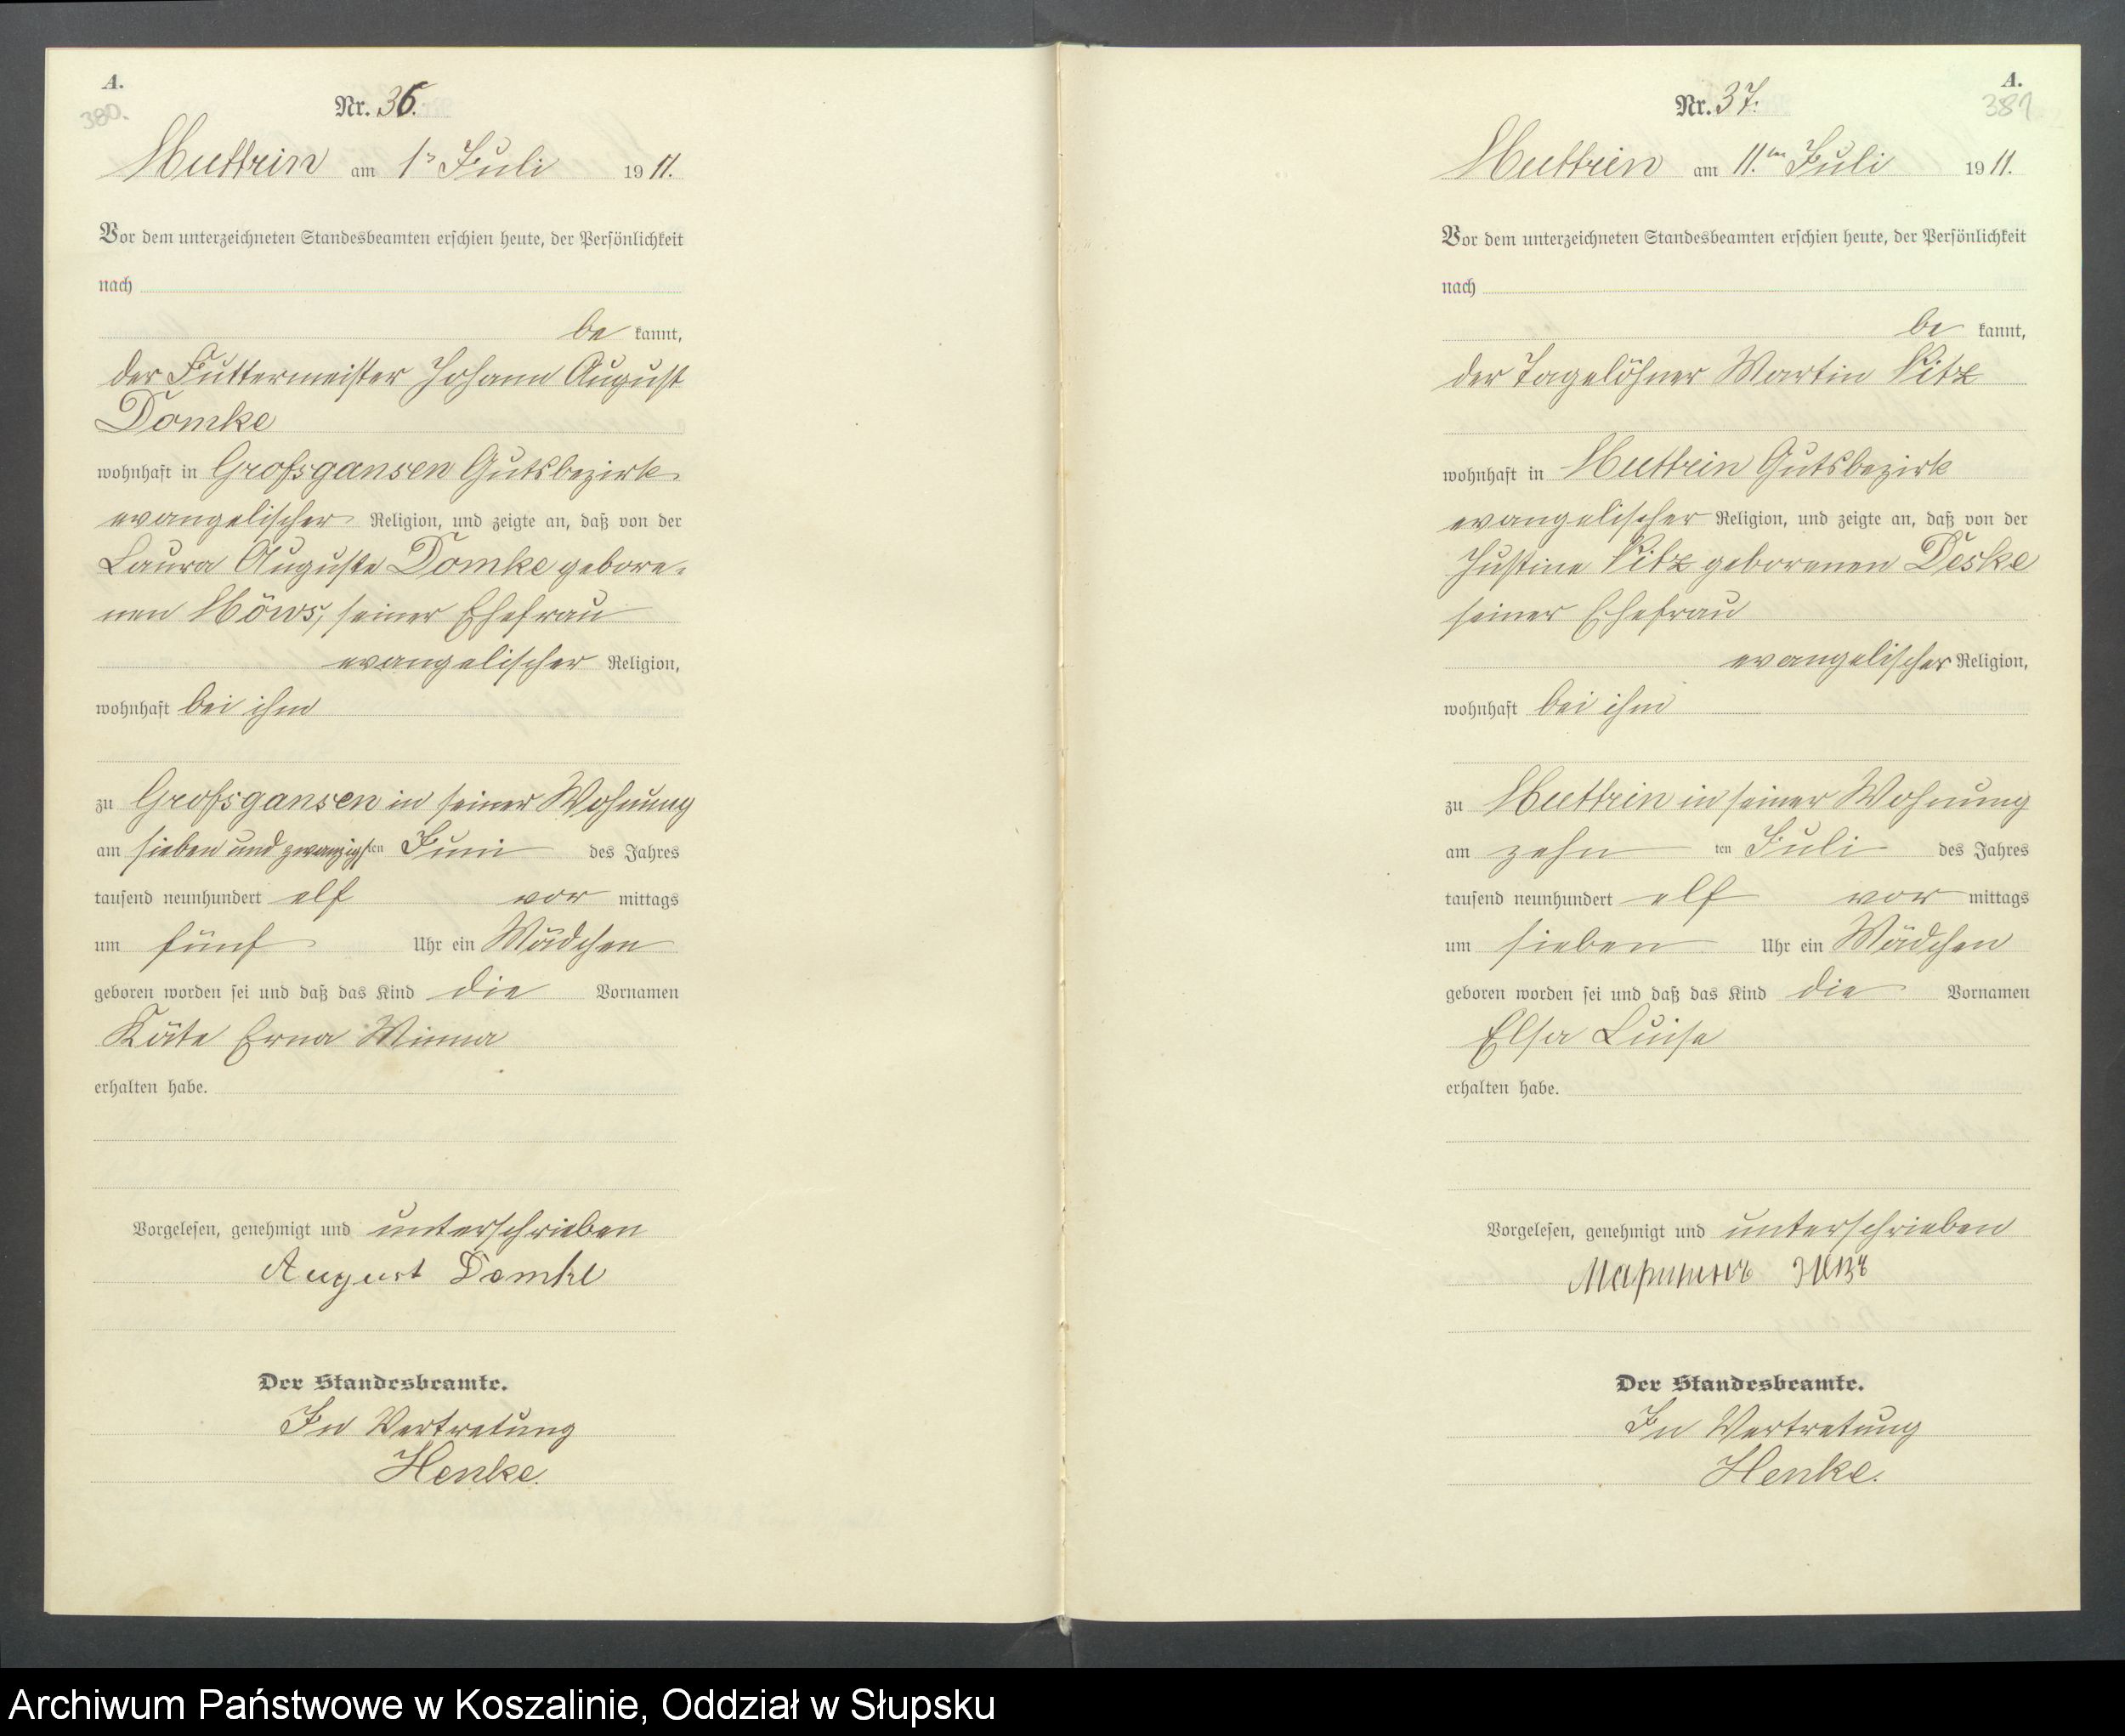 A.
380.
Nr. 36.
Muttrin am 1ˢ Juli 1911.
Vor dem unterzeichneten Standesbeamten erschien heute, der Persönlichkeit
nach
be kannt,
der Futtermeister Johann August
Domke
wohnhaft in Großgansen Gutsbezirk
evangelischer Religion, und zeigte an, daß von der
Laura Auguste Domke gebore-
nen Möws, seiner Ehefrau
evangelischer Religion,
wohnhaft bei ihm
zu Großgansen in seiner Wohnung
am sieben und zwanzigsten Juni des Jahres
tausend neunhundert elf vor mittags
um fünf Uhr ein Mädchen
geboren worden sei und daß das Kind die Vornamen
Käte Erna Minna
erhalten habe.
Vorgelesen, genehmigt und unterschrieben
August Domke
Der Standesbeamte.
In Vertretung
Henke.
A.
381
Nr. 37.
Muttrin am 11.ten Juli 1911.
Vor dem unterzeichneten Standesbeamten erschien heute, der Persönlichkeit
nach
be kannt,
der Tagelöhner Martin
wohnhaft in Muttrin Gutsbezirk
evangelischer Religion, und zeigte an, daß von der
Justine geborenen Deske
seiner Ehefrau
evangelischer Religion,
wohnhaft bei ihm
zu Muttrin in seiner Wohnung
am zehn ten Juli des Jahres
tausend neunhundert elf vor mittags
um sieben Uhr ein Mädchen
geboren worden sei und daß das Kind die Vornamen
Elsa Luise
erhalten habe.
Vorgelesen, genehmigt und unterschrieben
Der Standesbeamte.
In Vertretung
Henke.
Archiwum Państwowe w Koszalinie, Oddział w Słupsku